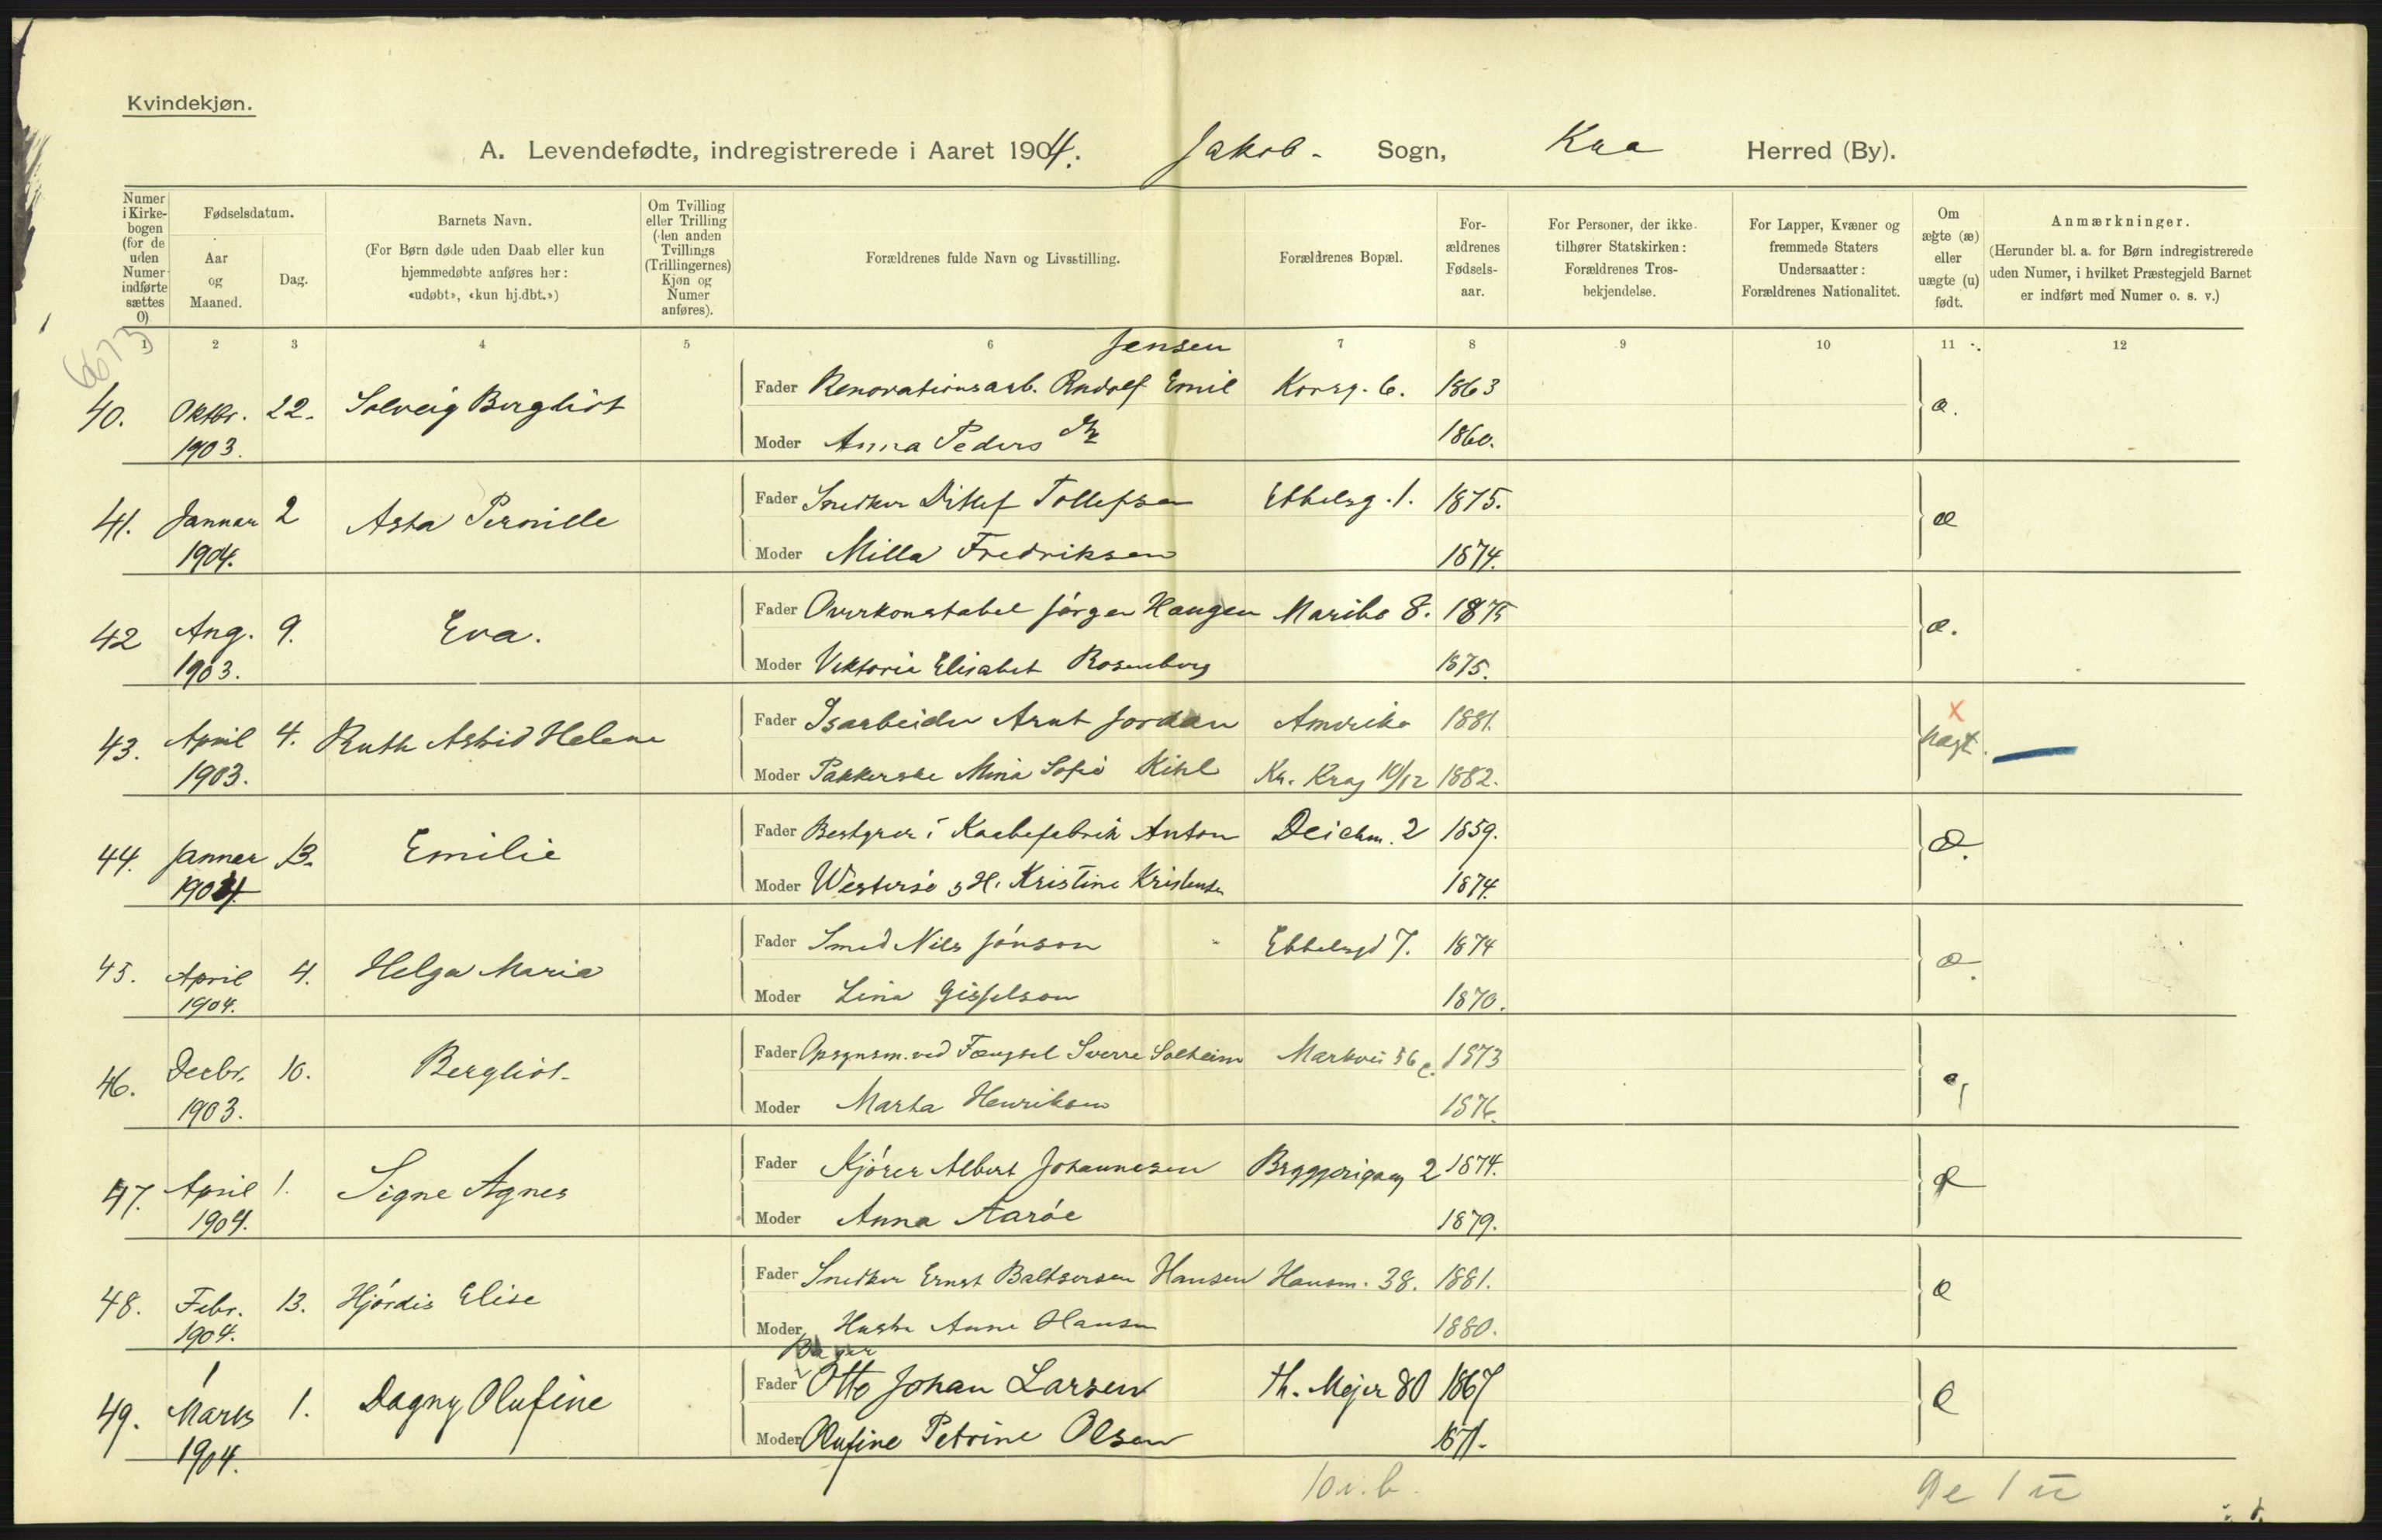 Kvindekjøn.
A. Levendefødte, indregistrerede i Aaret 1904. Jakob - Sogn, Kra Herred (By).
Numer i Kirke-bogen (for de uden Numer indførte sættes 0)
Fødselsdatum.
Aar og Maaned.
Dag.
Barnets Navn.
(For Børn døde uden Daab eller kun
hjemmedøbte anføres her:
«udøbt», «kun hj.dbt.»)
Om Tvilling
eller Trilling
(den anden
Tvillings
(Trillingernes)
Kjøn og
Numer
anføres).
Forældrenes fulde Navn og Livsstilling.
Forældrenes Bopæl.
For-
ældrenes
Fødsels-
aar.
For Personer, der ikke
tilhører Statskirken:
Forældrenes Tros-
bekjendelse.
For Lapper, Kvæner og
fremmede Staters
Undersaatter:
Forældrenes Nationalitet.
Om
ægte (æ)
eller
uægte (u)
født.
Anmærkninger.
(Herunder bl. a. for Børn indregistrerede
uden Numer, i hvilket Præstegjeld Barnet
er indført med Numer o. s. v.)
1 2 3 4 5 6 7 8 9 10 11 12
6673
Jensen
40. Oktbr. 22. Solveig Bergliot Fader Renovationsarb. Rudolf Emil Korsg. 6. 1863 æ.
1903. Moder Anna Peders 1860.
41. Januar 2 Asta Pernille Fader Snedker Ditlef Tollefsen Ebbelsg. 1. 1875. æ
1904. Moder Milla Fredriksen 1874.
42 Aug. 9. Eva. Fader Overkonstabel Jörgen Haugen Maribo 8. 1875 æ.
1903. Moder Viktoria Elisabet Rosenborg 1875.
43. April 4. Ruth Astrid Helene Fader Isarbeider Arnt Jordan Amerika 1881. x
uægt.
1903. Moder Pakkerske Mina Sofie Kihl Kr. Krag 10/12 1882.
44. Januar 13. Emilie Fader Bestyrer i Kaabefabrik Anton Deichm. 2 1859. æ.
1904 Moder Westersö, H. Kristine Kristensen 1874.
45. April 4. Helga Maria Fader Smed Nils Jönson Ebbelsgd 7. 1874 æ.
1904. Moder Lina Gisselson 1870.
46. Decbr. 10. Bergliot. Fader Opsynsm. ved Fængsel Sverre Solheim Markvei 56 c. 1873 æ
1903. Moder Marta Henriksen 1876.
47. April 1. Signe Agnes Fader Kjörer Albert Johannesen Bryggerigang 2 1874. æ
1904. Moder Anna Aaröe 1879.
48. Febr. 13. Hjördis Elise Fader Snedker Ernst Baltsersen Hansen Hausm. 38. 1881. æ
1904. Moder Hustr. Anne Hansen 1880.
Bager
49. Marts 1. Dagny Olufine Fader Otto Johan Larsen Th. Mejer 80 1867 æ
1904. Moder Olufine Petrine Olsen 1871.
10 i. b. 9 e 1 u